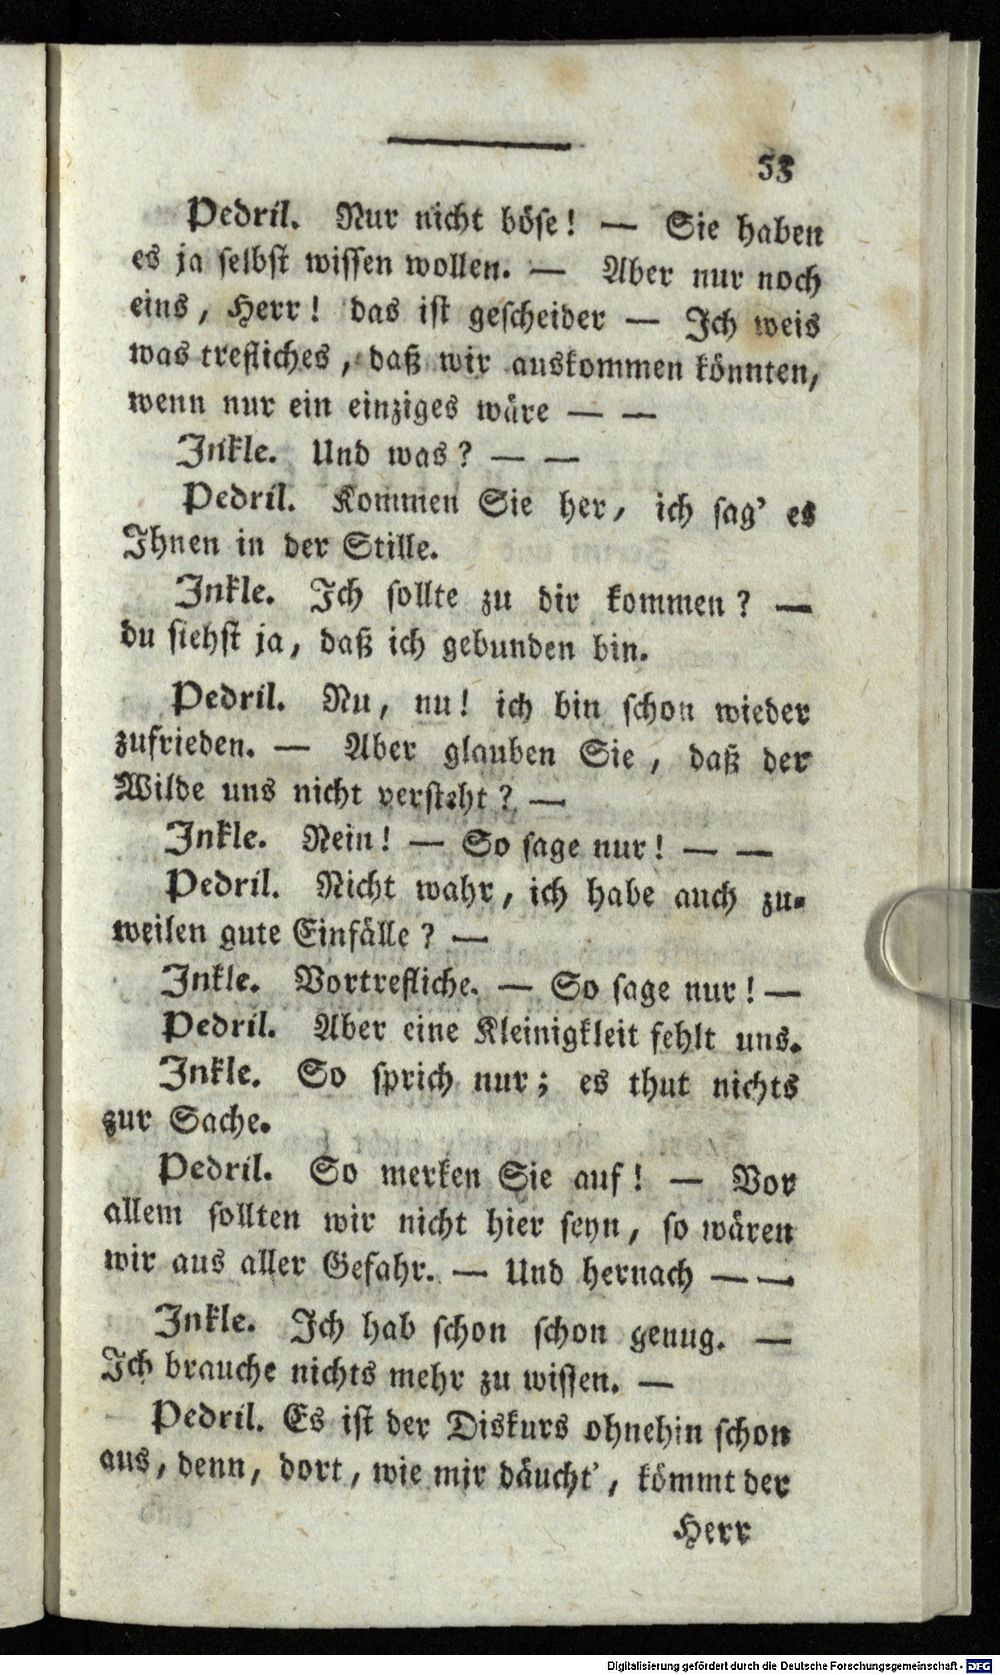 53
Pedril. Nur nicht böse! — Sie haben
es ja selbst wissen wollen. — Aber nur noch
eins, Herr! das ist gescheider — Ich weis
was trefliches, daß wir auskommen könnten,
wenn nur ein einziges wäre — —
Inkle. Und was? — —
Pedril. Kommen Sie her, ich sag' es
Ihnen in der Stille.
Inkle. Ich sollte zu dir kommen? —
du siehst ja, daß ich gebunden bin.
Pedril. Nu, nu! ich bin schon wieder
zufrieden. — Aber glauben Sie, daß der
Wilde uns nicht versteht? —
Inkle. Nein! — So sage nur! — —
Pedril. Nicht wahr, ich habe auch zu-
weilen gute Einfälle? —
Inkle. Vortrefliche. — So sage nur! —
Pedril. Aber eine Kleinigkleit fehlt uns.
Inkle. So sprich nur; es thut nichts
zur Sache.
Pedril. So merken Sie auf! — Vor
allem sollten wir nicht hier seyn, so wären
wir aus aller Gefahr. — Und hernach — —
Inkle. Ich hab schon schon genug. —
Ich brauche nichts mehr zu wissen. —
Pedril. Es ist der Diskurs ohnehin schon
aus, denn, dort, wie mir däucht', kömmt der
Herr
Digitalisierung gefördert durch die Deutsche Forschungsgemeinschaft - DFG